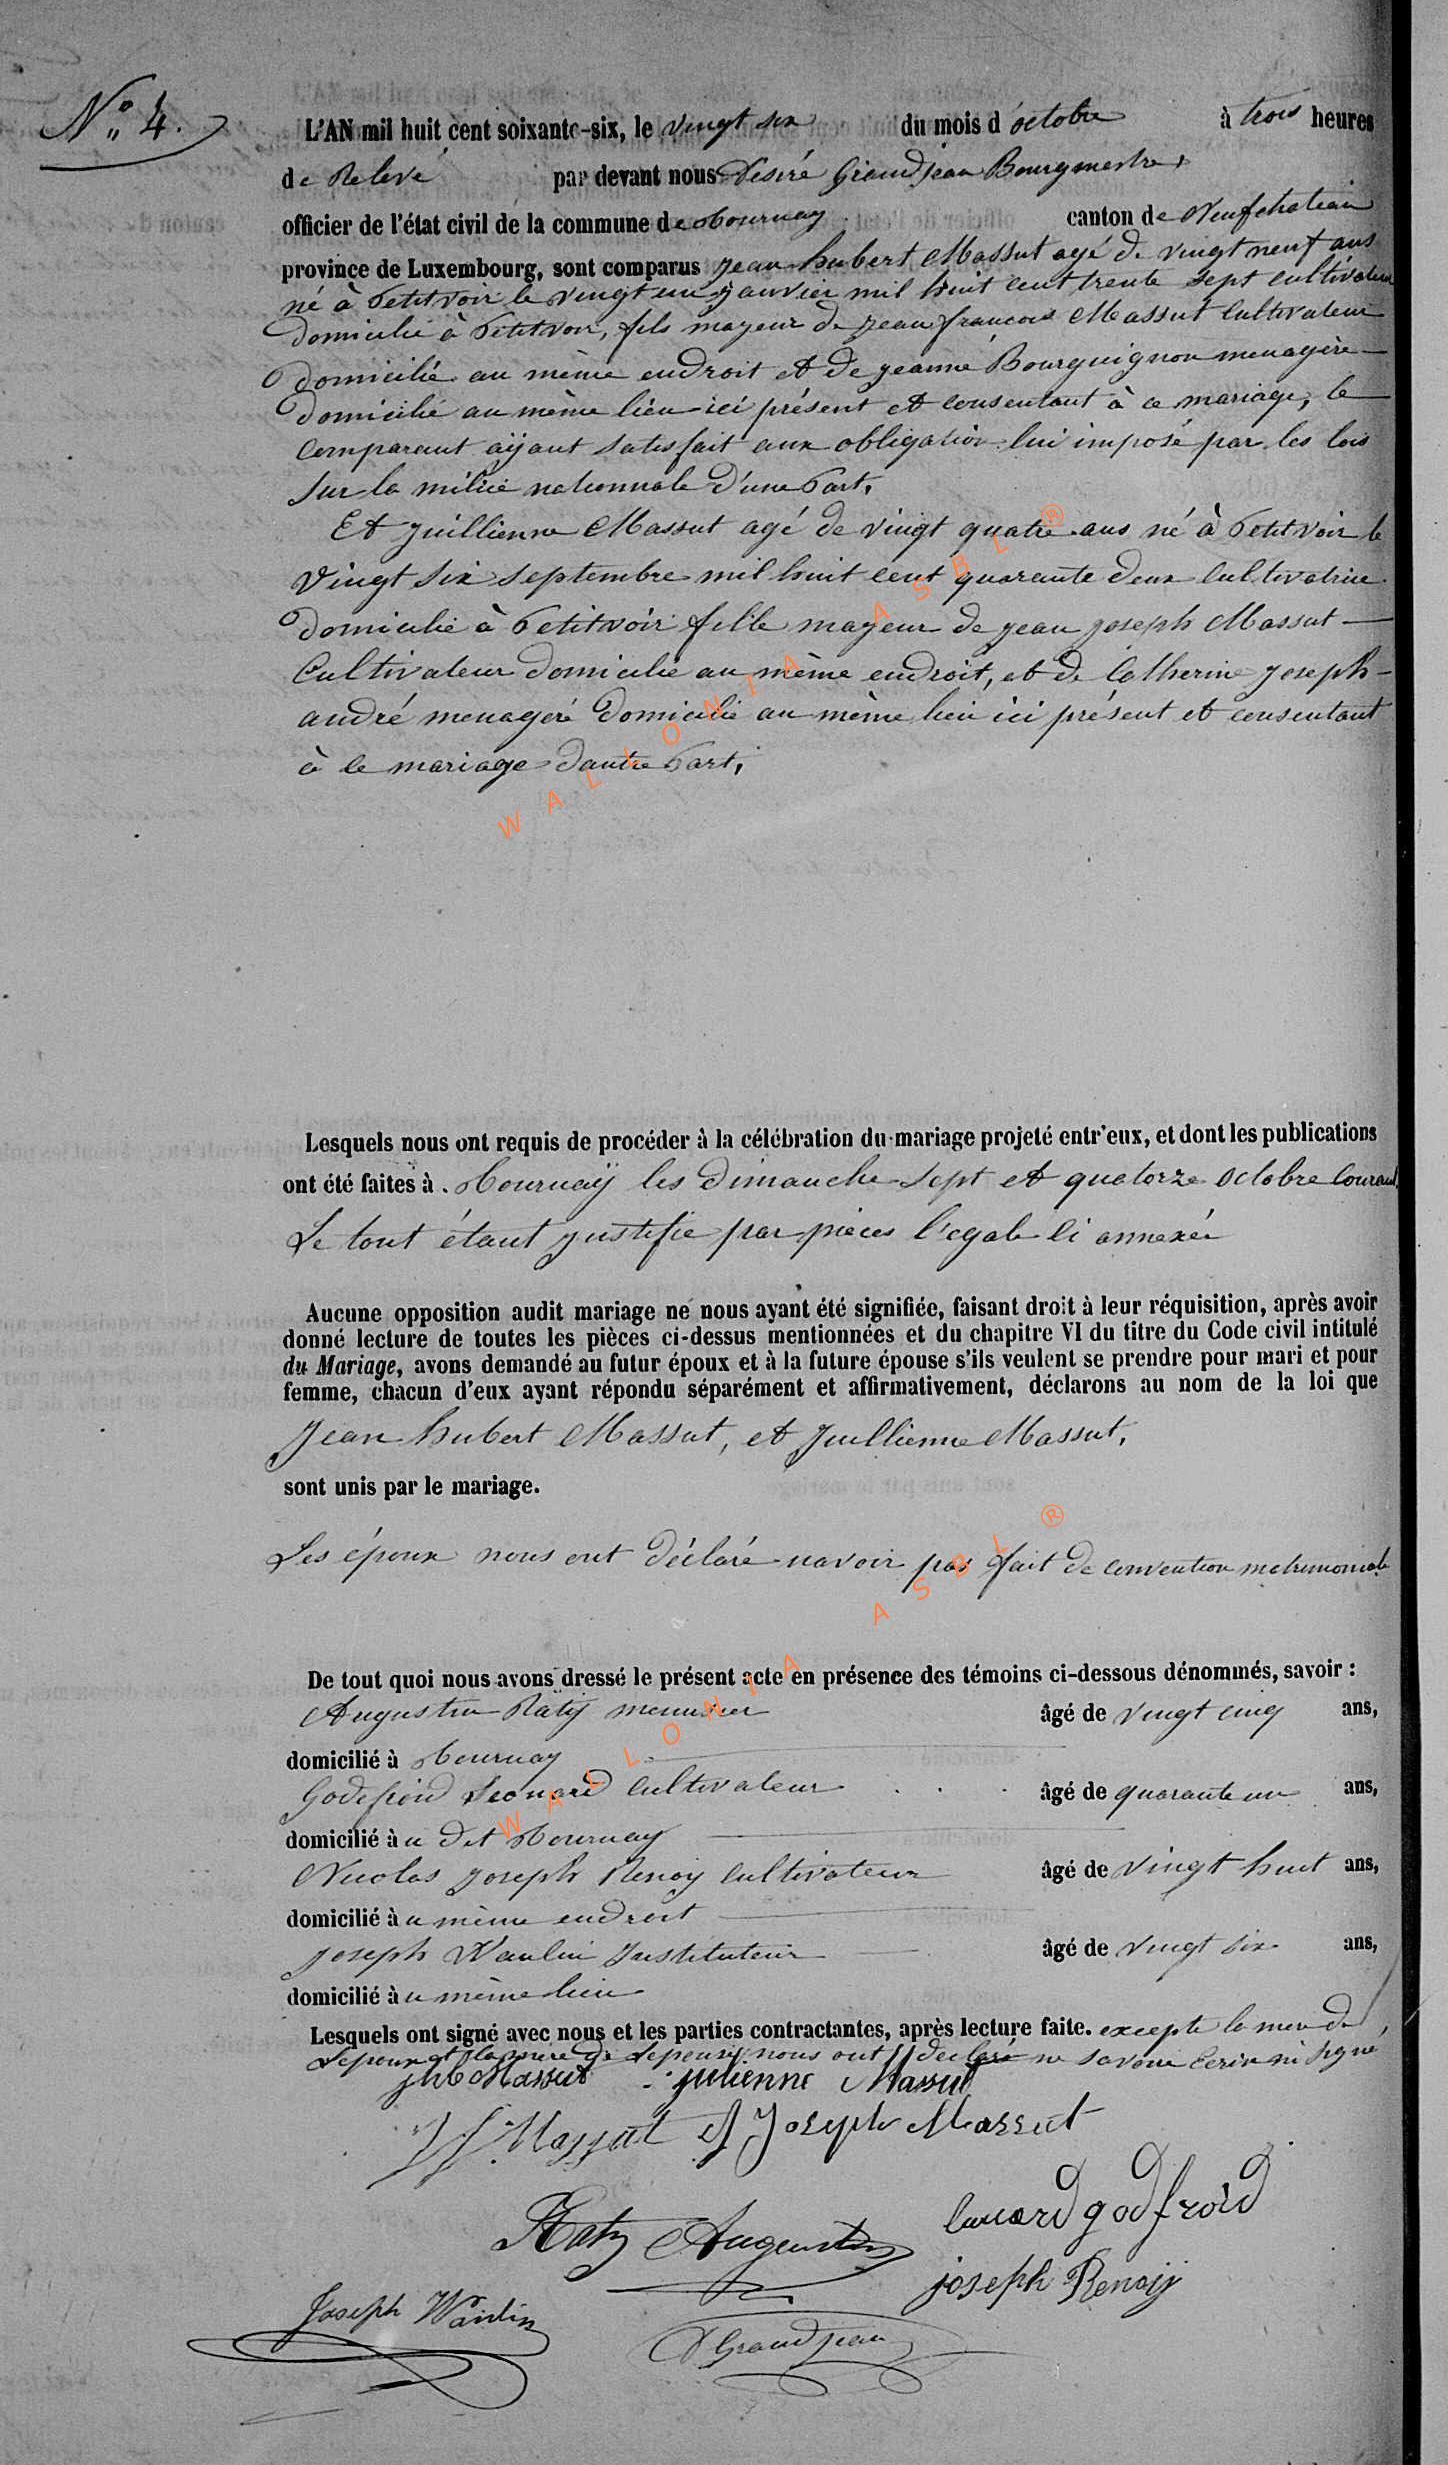 N° 4.
L'AN mil huit cent soixante-six, le vingt six du mois d'octobre à trois heures
de Relevé par devant nous Désiré Grandjean Bourgmestre,
officier de l'état civil de la commune de Tournay canton de Neufchateau
province de Luxembourg, sont comparus Jean hubert Massut agé de vingt neuf ans
né à Petitvoir le vingt un janvier mil huit cent trente sept cultivateur
domicilié à Petitvoir, fils mayeur de jean françois Massut Cultivateur
domicilié au même endroit et de jeanne Bourguignon menagère
domicilié au même lieu ici présent et consentant à ce mariage, le
comparant aÿant satisfait aux obligation lui imposé par les lois
sur la milice nationnale d'une Part,
Et Juillienne Massut agé de vingt quatre ans né à Petitvoir le
vingt six septembre mil huit cent quarante deux Cultivatrice
domicilié à Petitvoir fille mayeur de jean joseph Massut
Cultivateur domicilié au même endroit, et de Catherine joseph
andré menageré domicilié au même lieu ici présent et consentant
à ce mariage dautre Part,
Lesquels nous ont requis de procéder à la célébration du mariage projeté entr'eux, et dont les publications
ont été faites à Tournaÿ les dimanche sept et quatorze octobre Courant
Le tout étant justifie par pièces légale ci annexée
Aucune opposition audit mariage ne nous ayant été signifiée, faisant droit à leur réquisition, après avoir
donné lecture de toutes les pièces ci-dessus mentionnées et du chapitre VI du titre du Code civil intitulé
du Mariage, avons demandé au futur époux et à la future épouse s'ils veulent se prendre pour mari et pour
femme, chacun d'eux ayant répondu séparément et affirmativement, déclarons au nom de la loi que
Jean hubert Massut, et Juillienne Massut,
sont unis par le mariage.
Les époux nous ont déclaré navoir pas fait de convention matrimoniale
De tout quoi nous avons dressé le présent acte en présence des témoins ci-dessous dénommés, savoir :
Augustin Ratÿ menusier âgé de vingt cinq ans,
domicilié à Tournay
Godefroid Leonard Cultivateur âgé de quarante un ans,
domicilié à u dit Tournay
Nicolas joseph Renoy Cultivateur âgé de vingt huit ans,
domicilié à u même endroit
joseph Wanlin Instituteur âgé de vingt six ans,
domicilié à u même lieu
Lesquels ont signé avec nous et les parties contractantes, après lecture faite. excepte la mere de
Lepoux et la mère de Lepouse nous ont declaré ne savoir Ecrire ni signé
jhb Massut julienne Massut
JF Massut J Joseph Massut
Raty Augustin lenard godfroid
joseph Renoÿ
Joseph Wanlin
D Grandjean
WALLONIA ASBL ®
WALLONIA ASBL ®